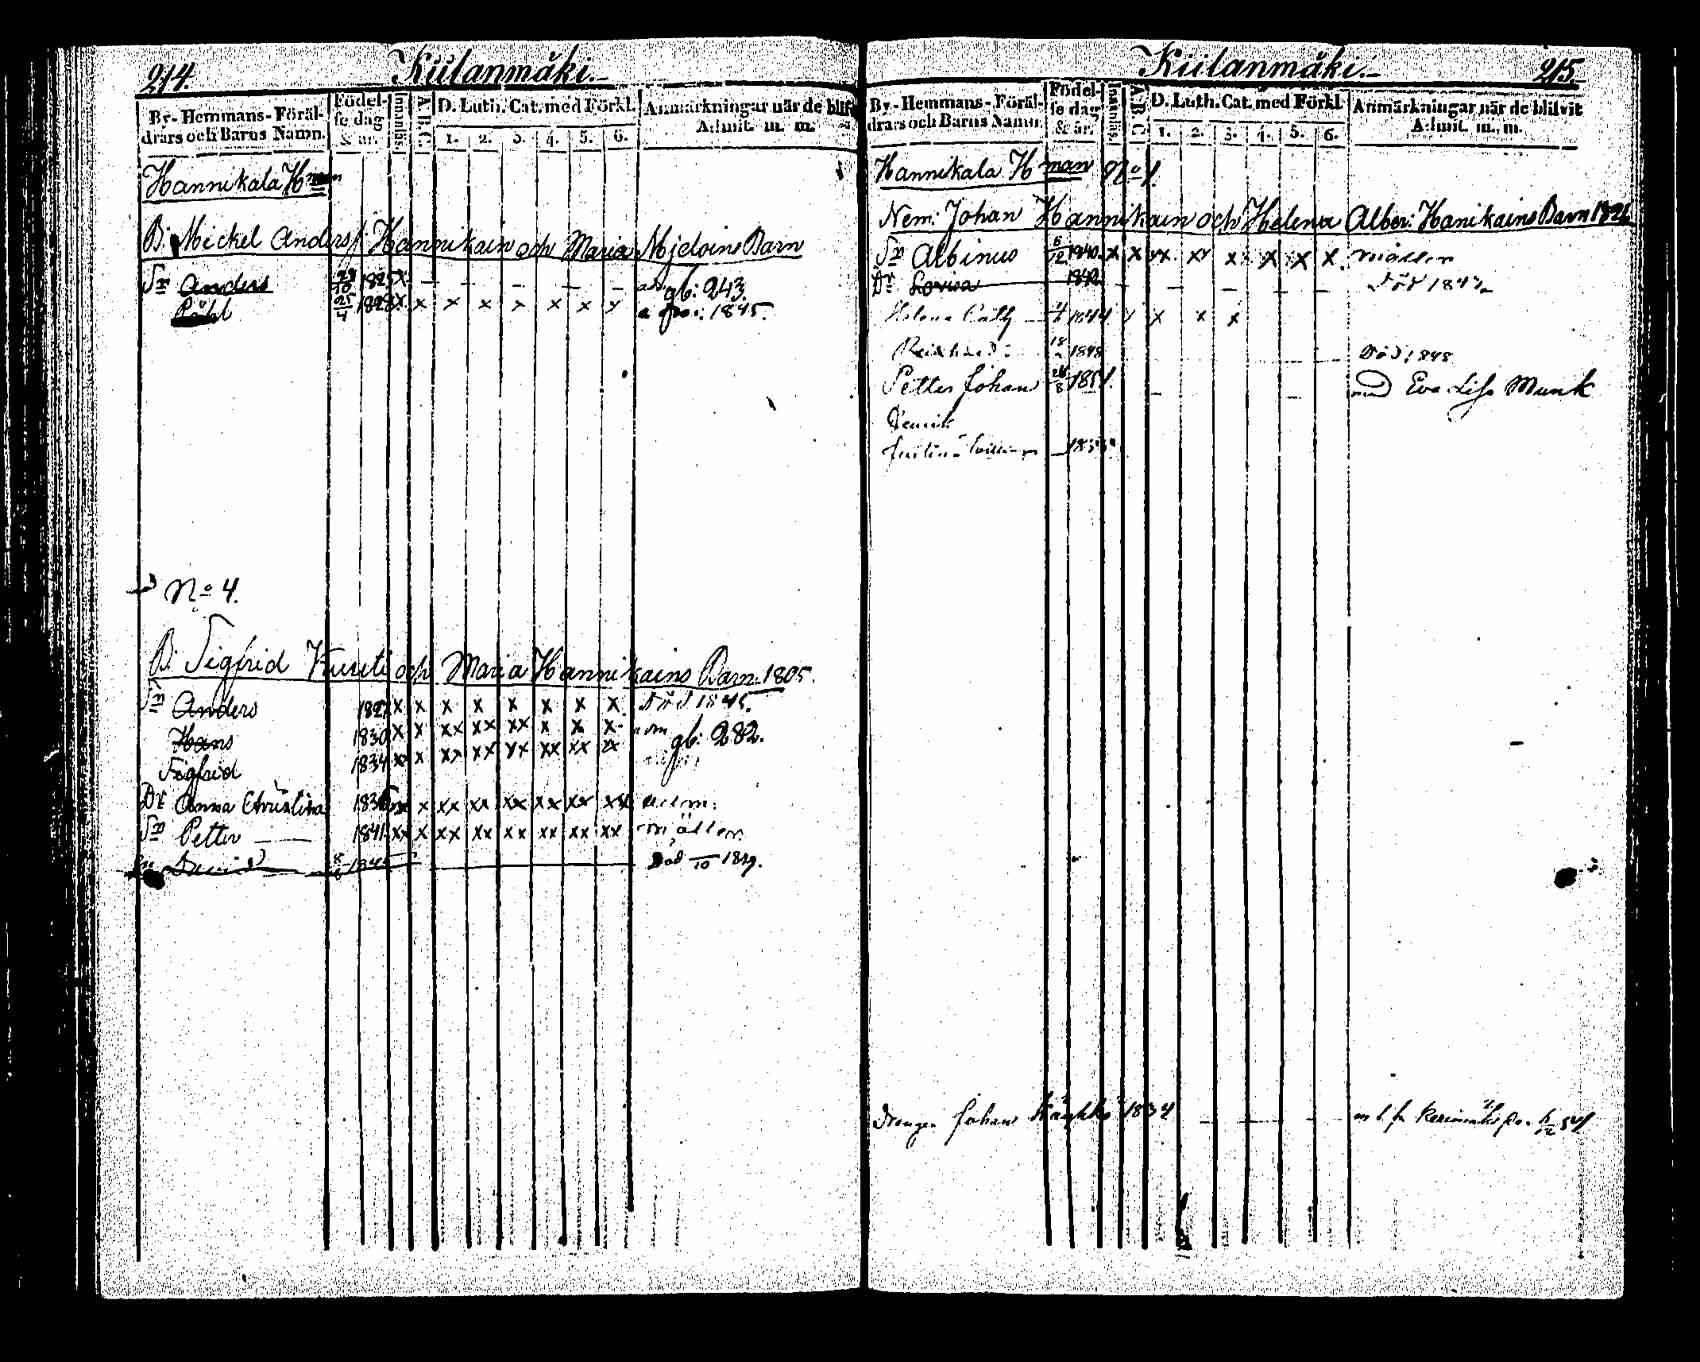 214. Kiilanmäki.
By- Hemmans- Föräl-
drars och Barns Namn.
Födel-
se dag
& år.
Innanläs.
A.B.C.
D. Luth. Cat. med Förkl.
1. 2. 3. 4. 5. 6.
Anmärkningar när de blif
Admit. m. m.
Hannikala Hman
B. Mickel Andersf. Hannikain och Maria Mjdoins Barn
Sn Anders 29/10 1825 x – – – – – – gb: 243.
Påhl 25/4 1828 x x x x x x x x 1845.
No 4.
B. Sigfrid Kuusti och Maria Hannikains Barn. 1805.
Sn Anders 182 x x x x x x x x Död 1845.
Hans 1830 x x xx xx xx x x x gb: 282.
Sigfrid 1834 xx x xx xx xx xx xx xx
Dr Anna Christina 1836 xx x xx xx xx xx xx xx
Sn Petter 1841 xx x xx xx xx xx xx xx
David Död /10 1849.
Kiilanmäki. 215.
By- Hemmans- Föräl-
drars och Barns Namn.
Födel-
se dag
& år.
Innanläs.
A.B.C.
D. Luth. Cat. med Förkl.
1. 2. 3. 4. 5. 6.
Anmärkningar när de blifvit
Admit. m. m.
Hannikala Hman No 1.
Nem: Johan Hannikain och Helena Alber: Hanikains Barn 182
Sn Albinus /12 1840 x x xx xx x x x x
Dr Lovisa 1842 Död 184
Helena Cath 1844 x x x x
1848 Död 1848
Petter Johan 24/8 1851. Eva Lisa Munk
Henrik
Drengen Johan 1834 /12 54